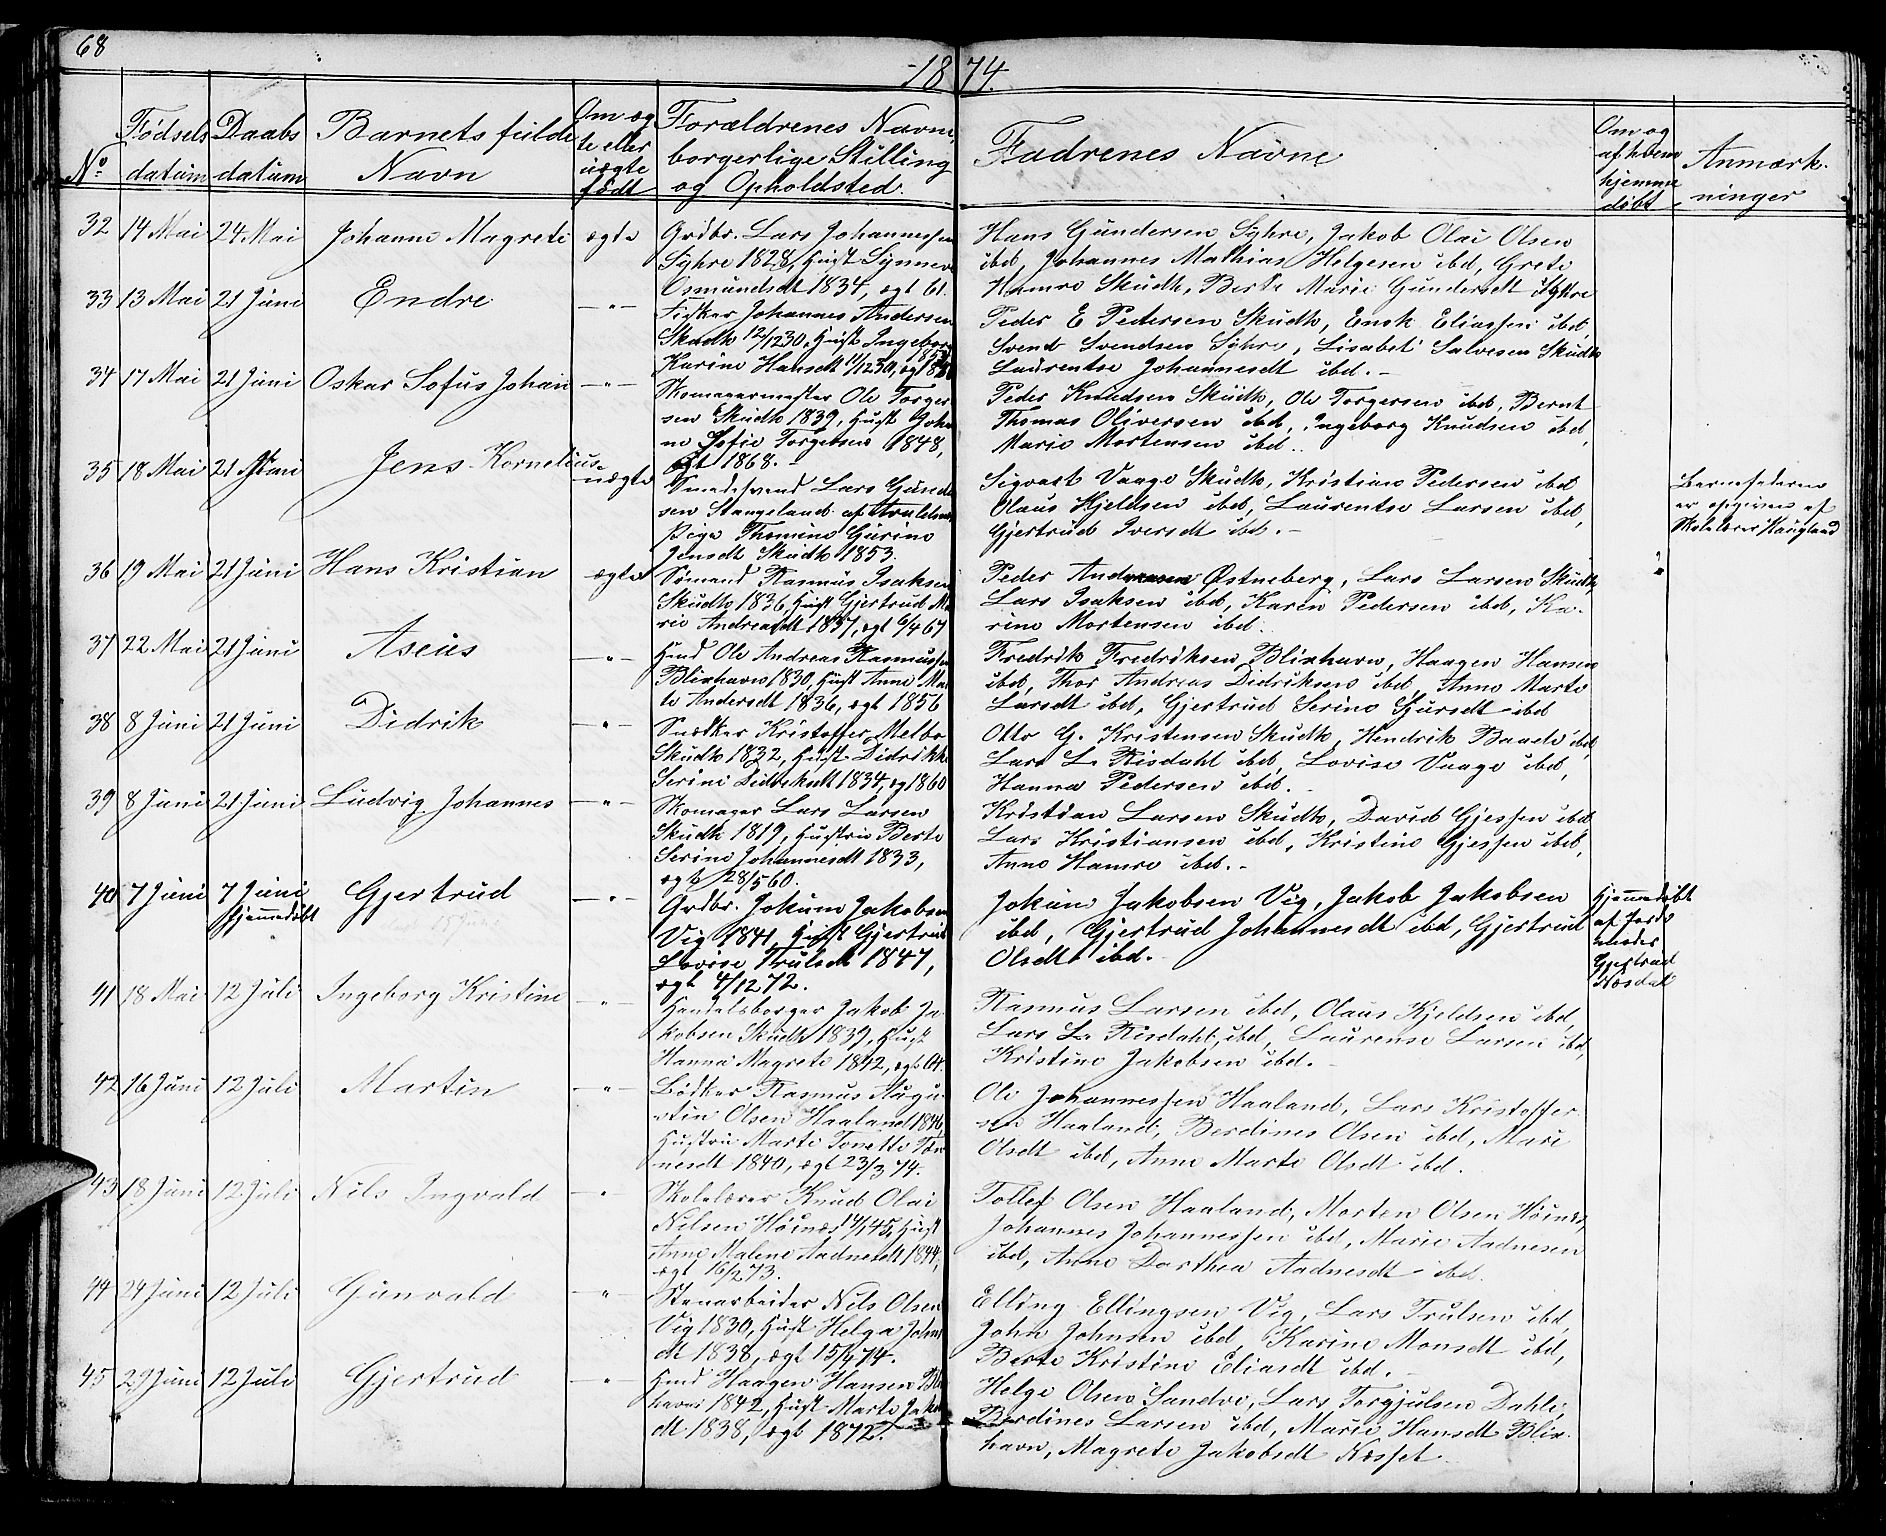 68
1874.
No
Fødsels datum
Daabs datum
Barnets fulde Navn
Om æg te eller uægte født
Forældrenes Navne, borgerlige Stilling og Opholdsted.
Fadrenes Navne
Om og af hvem hjemme døbt
Anmærk-ninger
32 14 Mai 24 Mai Johanne Magrete ægte
Grdbr. Lars Johannessen
Syhre 1828, Hust Synneve
Osmundsdt 1834, ægt 61.
Hans Gundersen Syhre, Jakob Olai Olsen
ibd, Johannes Mathias Helgesen ibd, Grete
Hamre Skudh, Berte Marie Gundersdt Syhre
33 13 Mai 21 Juni Endre -"-
Fisker Johannes Andersen
Skudh 12/12 30, Hust Ingeborg
Karine Hansdt 11/12 30, ægt 1851
Peder E Pedersen Skudh, Enok Eliassen ibd,
Svend Svendsen Syhre, Lisabet Salvesen Skudh
Laurentse Johannesdt ibd.-
34 17 Mai 21 Juni Oskar Sofus Johan -"-
Skomagermester Ole Torger
sen Skudh 1839, Hust Joha
ne Sofie Torgersen 1848,
ægt 1868.-
Peder Knudsen Skudh, Ole Torgersen ibd, Bernt
Thomas Oliversen ibd, Ingeborg Knudsen ibd,
Marie Mortensen ibd..
35 18 Mai 21 Juni Jens Kornelius uægte
Smedesvend Lars Gunder
sen Stangeland af
Pige Thomine Gurine
Jensdt Skudh 1853.
Sigvart Vaage Skudh, Kristian Pedersen ibd
Olaus Hjeldsen ibd, Laurentse Larsen ibd,
Gjertrud Iversdt ibd.-
Barnefaderen
er opgiven af
Skolelærer Haugland
36 19 Mai 21 Juni Hans Kristian ægte
Sømand Rasmus Isaksen
Skudh 1836, Hust Gjertrud Ma
rie Andreasdt 1837, ægt 6/4 67
Peder Andreasen Østneberg, Lars Larsen Skudh,
Lars Isaksen ibd, Karen Pedersen ibd, Ka-
rine Mortensen ibd.
37 22 Mai 21 Juni Aseus -"-
Hmd Ole Andreas Rasmussen
Blixhavn 1830, Hust Anne Mar
te Andersdt 1836, ægt 1856
Fredrik Fredriksen Blixhavn, Haagen Hansen
ibd, Thor Andreas Didriksen ibd, Anne Marte
Larsdt ibd, Gjertrud Serine Sjursdt ibd
38 8 Juni 21 Juni Didrik -"-
Snedker Kristoffer Melbo
Skudh 1832, Hust Didrikke
Serine Didriksdt 1834, æg 1860
Otto G. Kristensen Skudh, Hendrik Baade ibd,
Lars L. Risdahl ibd, Lovise Vaage ibd,
Hanna Pedersen ibid.-
39 8 Juni 21 Juni Ludvig Johannes -"-
Skomager Lars Larsen
Skudh 1819, Hustru Berte
Serine Johannesdt 1833,
ægt 28/5 60.
Kristian Larsen Skudh, David Gjessen ibd
Lars Kristiansen ibd, Kristine Gjessen ibd,
Anne Hamre ibd.-
40 7 Juni 7 Juni Hjemmedøbt Gjertrud -"-
Grdbr. Jokum Jakobsen
Vig 1841, Hust Gjertrud
Lovise Trulsdt 1847,
ægt 4/12 72.
Jokum Jakobsen Vig, Jakob Jakobsen
ibd, Gjertrud Johannesdt ibd, Gjertrud
Olsdt ibd.
Hjemmedøbt
af Jorde
moder
Gjertrud
Næsdal
41 18 Mai 12 Juli Ingeborg Kristine -"-
Handelsborger Jakob Ja
kobsen Skudh 1839, Hust
Hanna Magrete 1842, ægt 64.
Rasmus Larsen ibd, Olaus Kjeldsen ibd,
Lars L. Risdahl, ibd, Laurense Larsen ibd,
Kristine Jakobsen ibd.-
42 16 Juni 12 Juli Martin -"-
Bødker Rasmus Augu-
stin Olsen Haaland 1846,
Hustru Marte Tonette Tøn
nesdt 1840, ægt 23/3 74.
Ole Johannessen Haaland, Lars Kristoffer
sen Haaland, Berdines Olsen ibd, Mari
Olsdt ibd, Anne Marte Olsdt ibd.
43 18 Juni 12 Juli Nils Ingvald -"
Skolelærer Knud Olai
Nilsen Høines 14/1 45, Hust
Anne Malene Aadnesdt 1844,
ægt 16/2 73.
Tollef Olsen Haaland, Morten Olsen Høines,
Johannes Johannessen ibd, Marie Aadnesen
ibd, Anne Dorthea Aadnesdt ibd.
44 24 Juni 12 Juli Gunvald -"
Stenarbeider Nils Olsen
Vig 1830, Hust Helga Johns
dt 1838, ægt 15/4 74.
Elling Ellingsen Vig, Lars Trulsen ibd,
John Johnsen ibd, Karine Monsdt ibd,
Berte Kristine Eliasdt ibd.-
45 29 Juni 12 Juli Gjertrud -"-
Hmd Haagen Hansen Blix
havn 1842, Hust Marte Jakobs
dt 1838, ægt 1872.
Helge Olsen Sandve, Lars Torgjulsen Dahle,
Berdines Larsen ibd, Marie Hansdt Blix-
havn, Magrete Jakobsdt Næsset